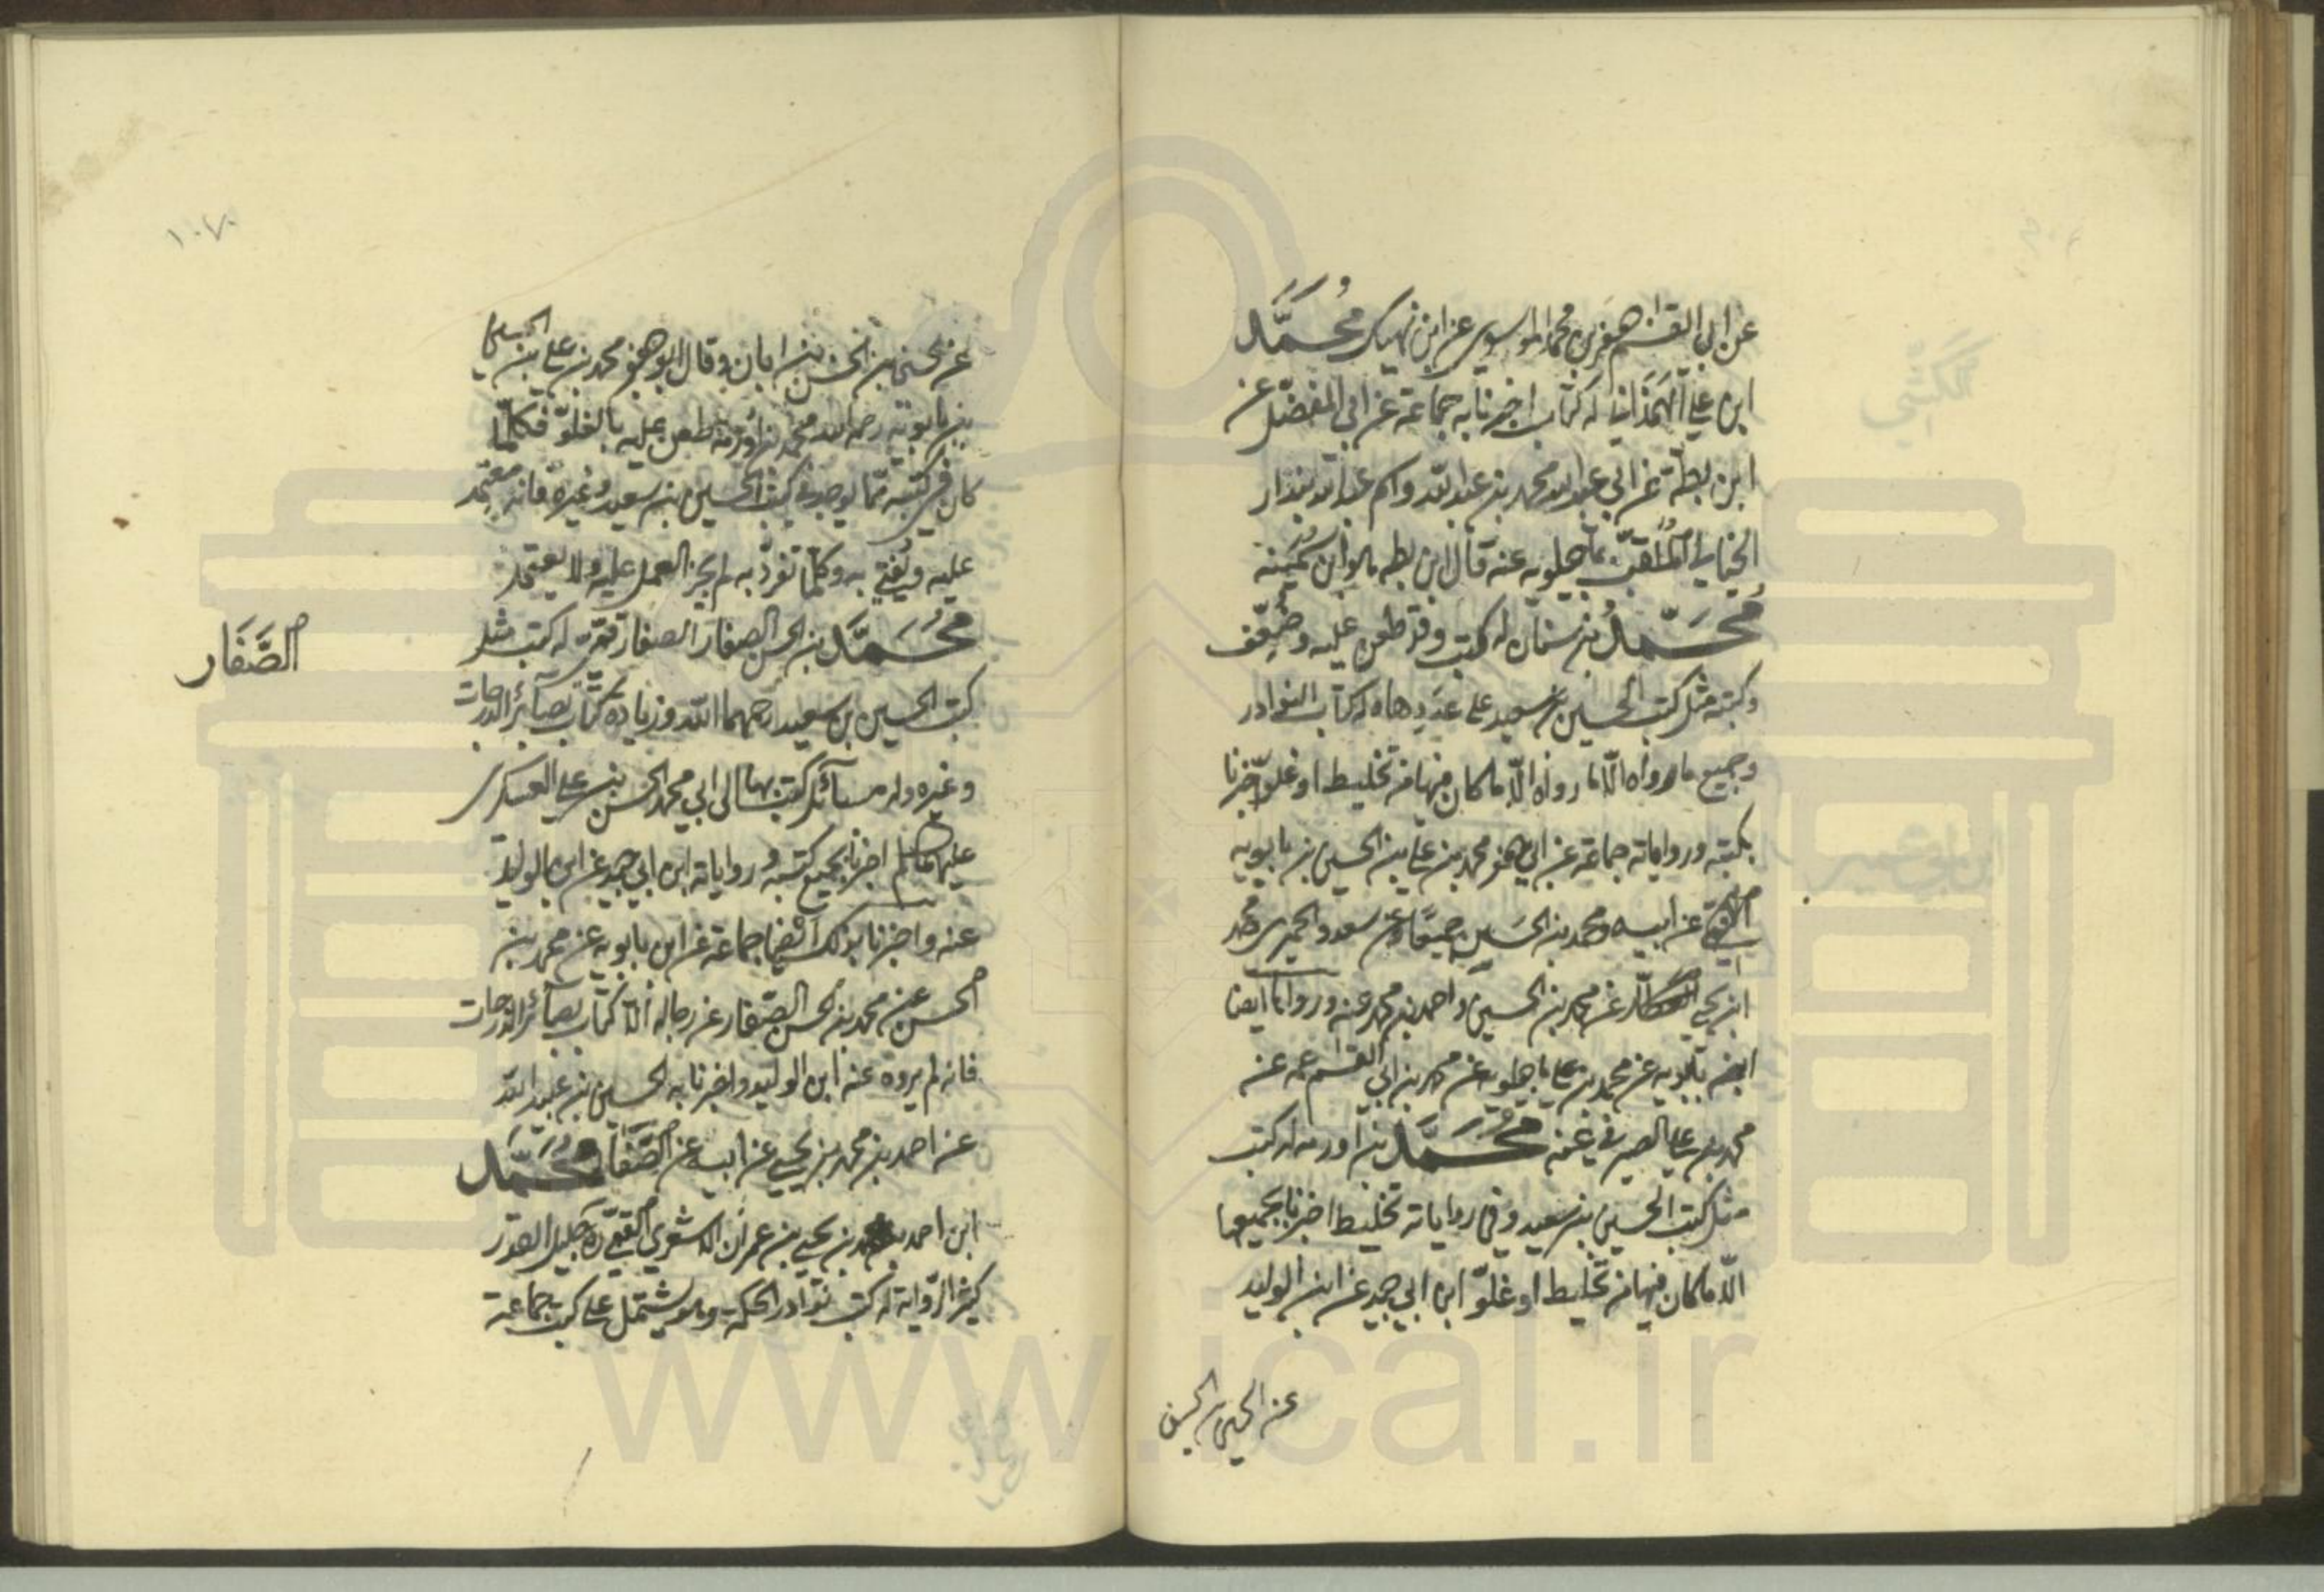 عن ابي القسم جعفر بن محمد الموسوي عن ابن نهيك مُحَمَّد
ابن علي الهَمَذاني له كتاب اخبرنا به جماعة عن ابي المفضّل عن
ابن بطّة عن ابي عبد الله محمد بن عبد الله واسم عبد الله بندار
الخياط المُلَقّب بماجيلويه عنه قال ابن بطه هو ابن سُمَينه
مُحَمَّدُ بن سنان له كتب وقد طعن عليه وضُعِّف
وكتبه مثل كتب الحسين بن سعيد على عَدَدِها وله كتاب النوادر
وجميع ما رواه الّا ما رواه الّا ما كان فيها من تخليط او غلوّ اخبرنا
بكتبه ورواياته جماعة عن ابي جعفر محمد بن علي بن الحسين بن بابويه
القمّي عن ابيه ومحمد بن الحَسَين جميعًا عن سعد والحميري ومحمد
ابن يحيى عن محمد بن الحسين واحمد بن محمد عنه ورواها ايضا
ابن بابويه عن محمد بن علي ماجيلويه عن محمد بن ابي القسم عمه عن
محمد بن علي الصيرفي عنه مُحَمَّد بن اورمه له كتب
مثل كتب الحسين بن سعيد وفي رواياته تخليط اخبرنا بجميعها
الّا ما كان فيها من تخليط او غلوّ ابن ابي جيد عن ابن الوليد
عن الحسين بن الحسن
١٠٧
عن الحسين بن الحسن بن ابان وقال ابو جعفر محمد بن علي بن الحسين
بن بابويه رحمه الله محمد بن اورمة طعن عليه بالغلوّ فكلّما
كان في كتبه ممّا يوجد في كتب الحسين بن سعيد وغيره فانه معتمد
عليه ويُفتي به وكلّما تفرّد به لم يجز العمل عليه ولا يعتمد
مُحَمَّد بن الحسن الصفار الصفار قمّي له كتب مثل
الصَّفَار
كتب الحسين بن سعيد رحمهما الله وزيادة كتاب بصآئر الدرجات
وغيره وله مسآئل كتب بها الى ابي محمد الحسن بن علي العسكري
عليهما السلم اخبرنا بجميع كتبه ورواياته ابن ابي جيد عن ابن الوليد
عنه واخبرنا بذلك ايضا جماعة عن ابن بابويه عن محمد بن
الحسن عن محمد بن الحسن الصّفار عن رجاله الّا كتاب بصآئر الدرجات
فانه لم يروه عنه ابن الوليد واخبرنا به الحسين بن عبيد الله
عن احمد بن محمد بن يحيى عن ابيه عن الصَّفَار مُحَمَّد
ابن احمد بن يحيى بن عمران الاشعري القمّي ره جليل القدر
كثير الرّواية له كتب نوادر الحكمة وهو يشتمل على كتب جماعة
www.ical.ir